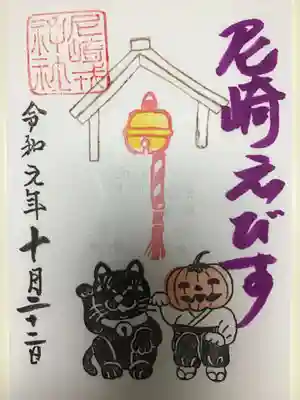 尼崎えびす
尼崎戎
神社
令和元年十月二十二日